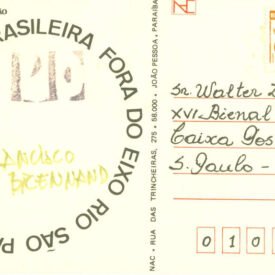 BRASILEIRA FORA DO EIXO RIO SÃO PA
FRANCISCO
BRENNAND
NAC - RUA DAS TRINCHEIRAS, 275 - 58.000 - JOÃO PESSOA, PARAÍBA
Sr. Walter Z
XVI Bienal
Caixa Pos
S. Paulo -
0 1 0